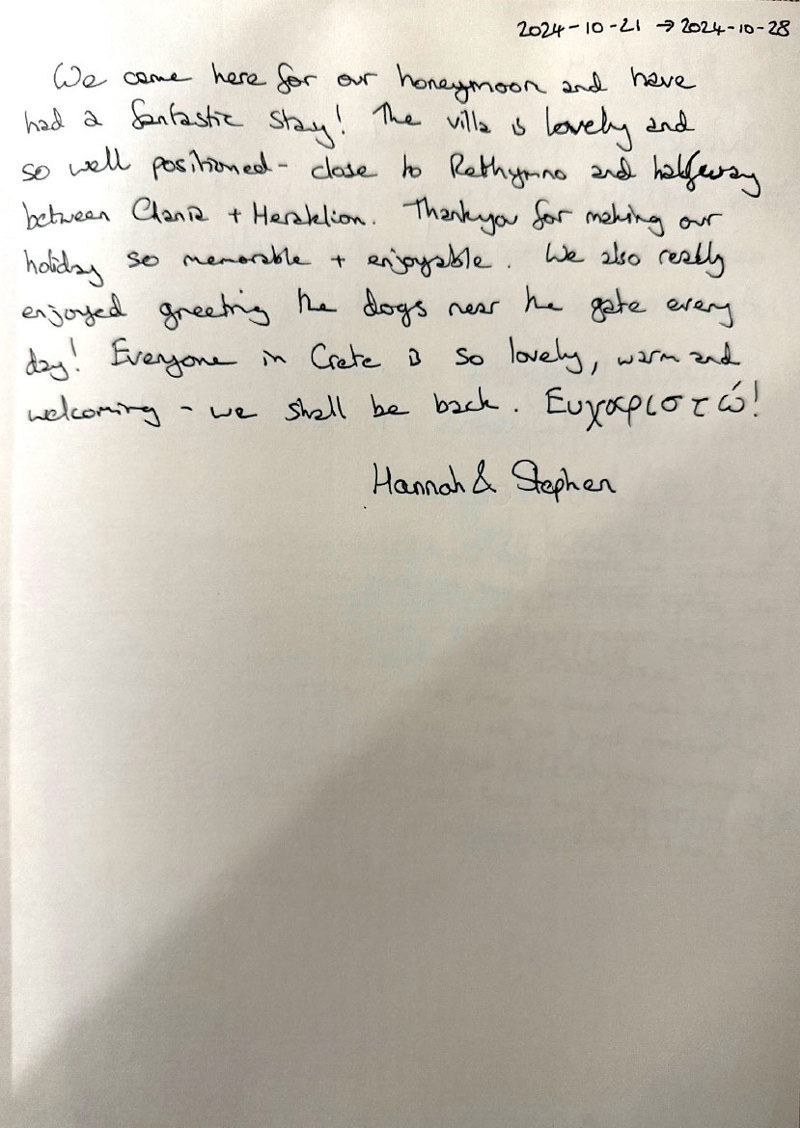 2024-10-21 → 2024-10-28
We came here for our honeymoon and have
had a fantastic stay! The villa is lovely and
so well positioned - close to Rethymno and halfway
between Chania + Heraklion. Thankyou for making our
holiday so memorable + enjoyable. We also really
enjoyed greeting the dogs near the gate every
day! Everyone in Crete is so lovely, warm and
welcoming - we shall be back. Ευχαριστώ!
Hannah & Stephen